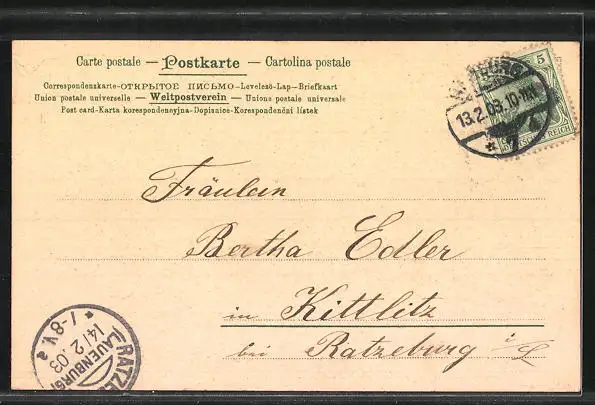 Carte postale — Postkarte — Cartolina postale
Correspondenzkarte-ОТКРЫТОЕ ПИСЬМО-Levelező-Lap-Briefkaart
Union postale universelle — Weltpostverein — Unione postale universale
Post card-Karta korespondencyjna-Dopisnice-Korespondenční lístek
5
13.2.03.10-11
DEUTSCHES REICH
Fräulein
Bertha Edler
in Kittlitz
bei Ratzeburg i/L
7-8V.
14/2.03
(LAUENBURG)